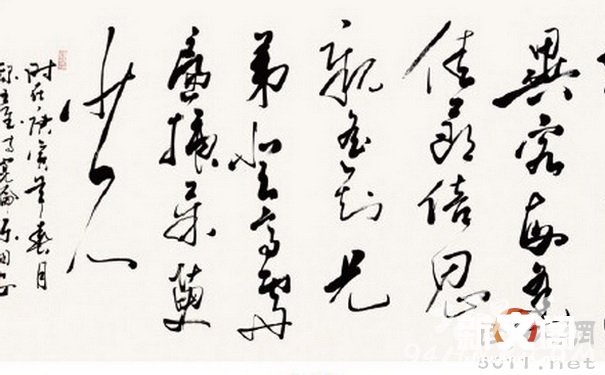 異客每逢
佳節倍思
親遥知兄
弟登高處
遍插茱萸
少一人
時在庚寅年春月
5011.net